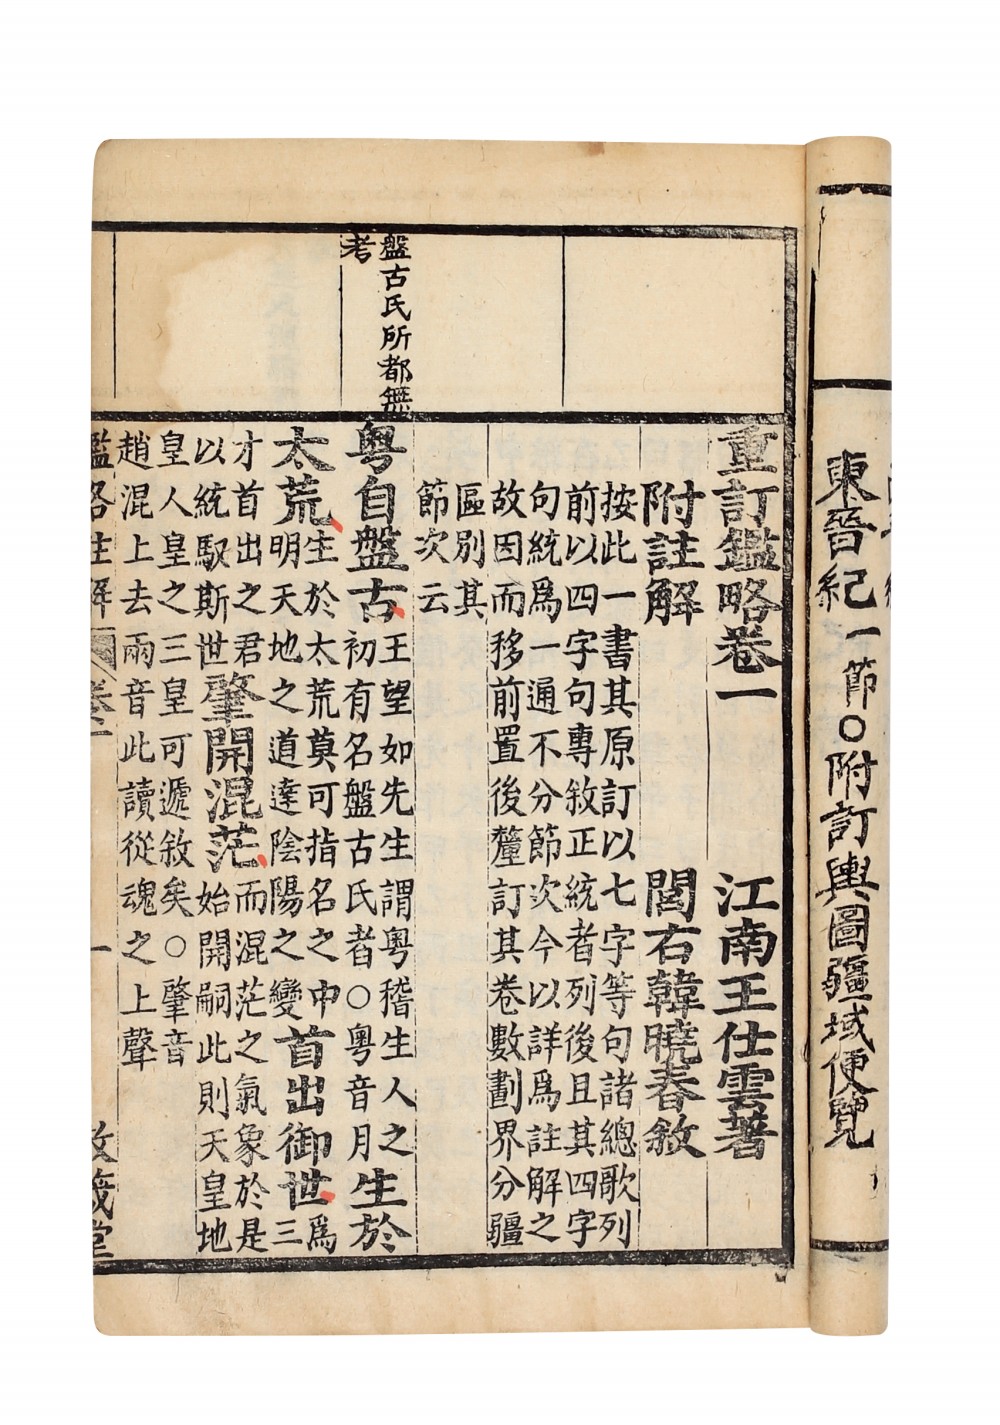 東晉紀一節〇附訂輿圖疆域便覽
盤古氏所都無
考
重訂鑑略卷一 江南王仕雲著
附註解 閭右韓曉春敘
按此一書其原訂以七字等句諸總歌列
前以四字句專敘正統者列後且其四字
句統爲一通不分節次今以詳爲註解之
故因而移前置後釐訂其卷數劃界分疆
區別其
節次云
粤自盤古王望如先生謂粤稽生人之初有名盤古氏者〇粤音月生於
太荒生於太荒莫可指名之中明天地之道達陰陽之變首出御世爲三
才首出之君以統馭斯世肇開混茫而混茫之氣象於是始開嗣此則天皇地
皇人皇之三皇可遞敘矣〇肇音
趙混上去兩音此讀從魂之上聲
鑑略註解 卷一 一